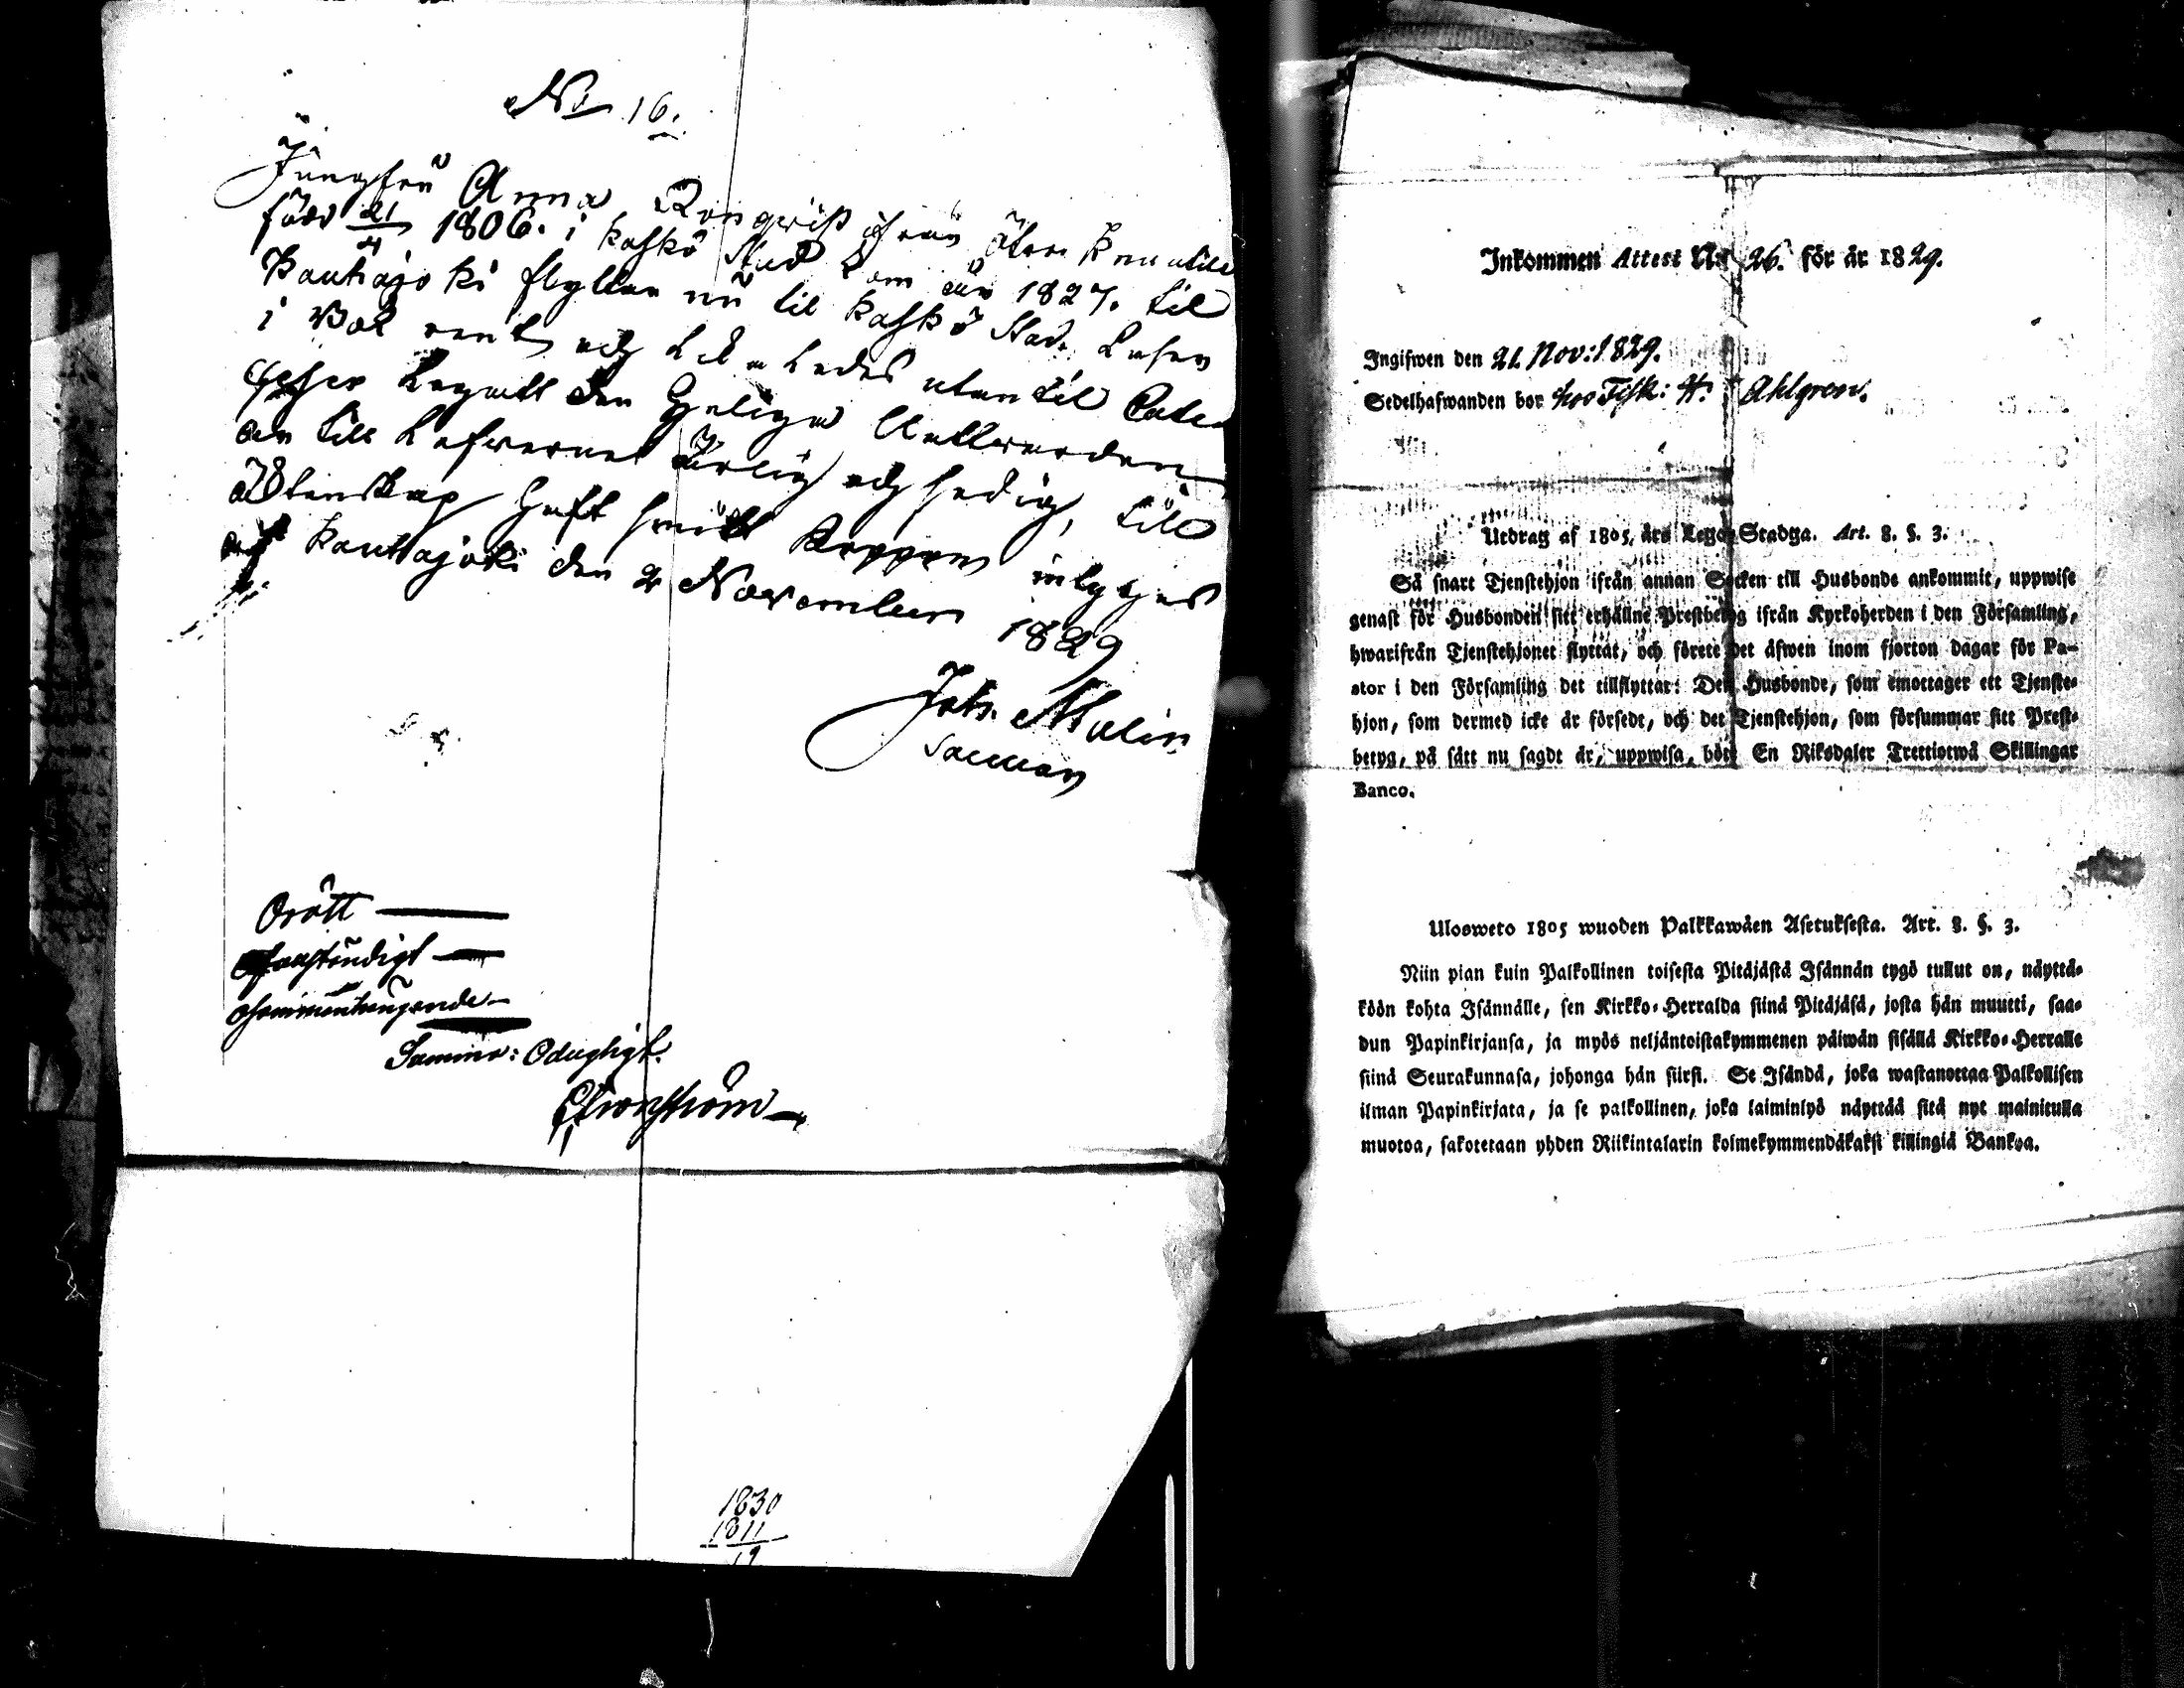 No 16.
Jungfru Anna Rongvist ifrån
född 21/4 1806. i Kaskö Stad kom år 1827. til
Kauhajoki flyttar nu til Kaskö Stad. Läser
i Bok rent och Lika Ledes utantil Cate-
Begått den Helige Nattvarden
är till Lefvernet ärlig och sedig, till
Äktenskap
Kauhajoki den 2 November 1829
Joh. Malin
Orätt —
Ofullständigt —
Osammanhängande —
Summa: Odugligt.
1830
1811
19
Inkommen Attest N:r 26. för år 1829.
Ingifwen den 21. Nov: 1829.
Sedelhafwanden bor hos Fisk: H. Ahlgren.
Utdrag af 1805, års Lego-Stadga. Art. 8. §. 3.
Så snart Tjenstehjon ifrån annan Socken till Husbonde ankommit, uppwise
genast för Husbonden sitt erhållne Prestbetyg ifrån Kyrkoherden i den Församling,
hwarifrån Tjenstehjonet flyttat, och förete det äfwen inom fjorton dagar för Pa-
stor i den Församling det tillflyttar: Den Husbonde, som emottager ett Tjenste-
hjon, som dermed icke är försedt, och det Tjenstehjon, som försummar sitt Prest-
betyg, på sätt nu sagdt är, uppwisa, böte En Riksdaler Trettiotwå Skillingar
Banco.
Ulosweto 1805 wuoden Palkkawäen Asetuksesta. Art. 8. §. 3.
Niin pian kuin Palkollinen toisesta Pitäjästä Isännän tygö tullut on, näyttä-
köön kohta Isännälle, sen Kirkko-Herralda siinä Pitäjäsä, josta hän muutti, saa-
dun Papinkirjansa, ja myös neljäntoistakymmenen päiwän sisällä Kirkko-Herralle
siinä Seurakunnasa, johonga hän siirsi. Se Isändä, joka wastanottaa Palkollisen
ilman Papinkirjata, ja se palkollinen, joka laiminlyö näyttää sitä nyt mainitulla
muotoa, sakotetaan yhden Riikintalarin kolmekymmendäkaksi killingiä Bankoa.